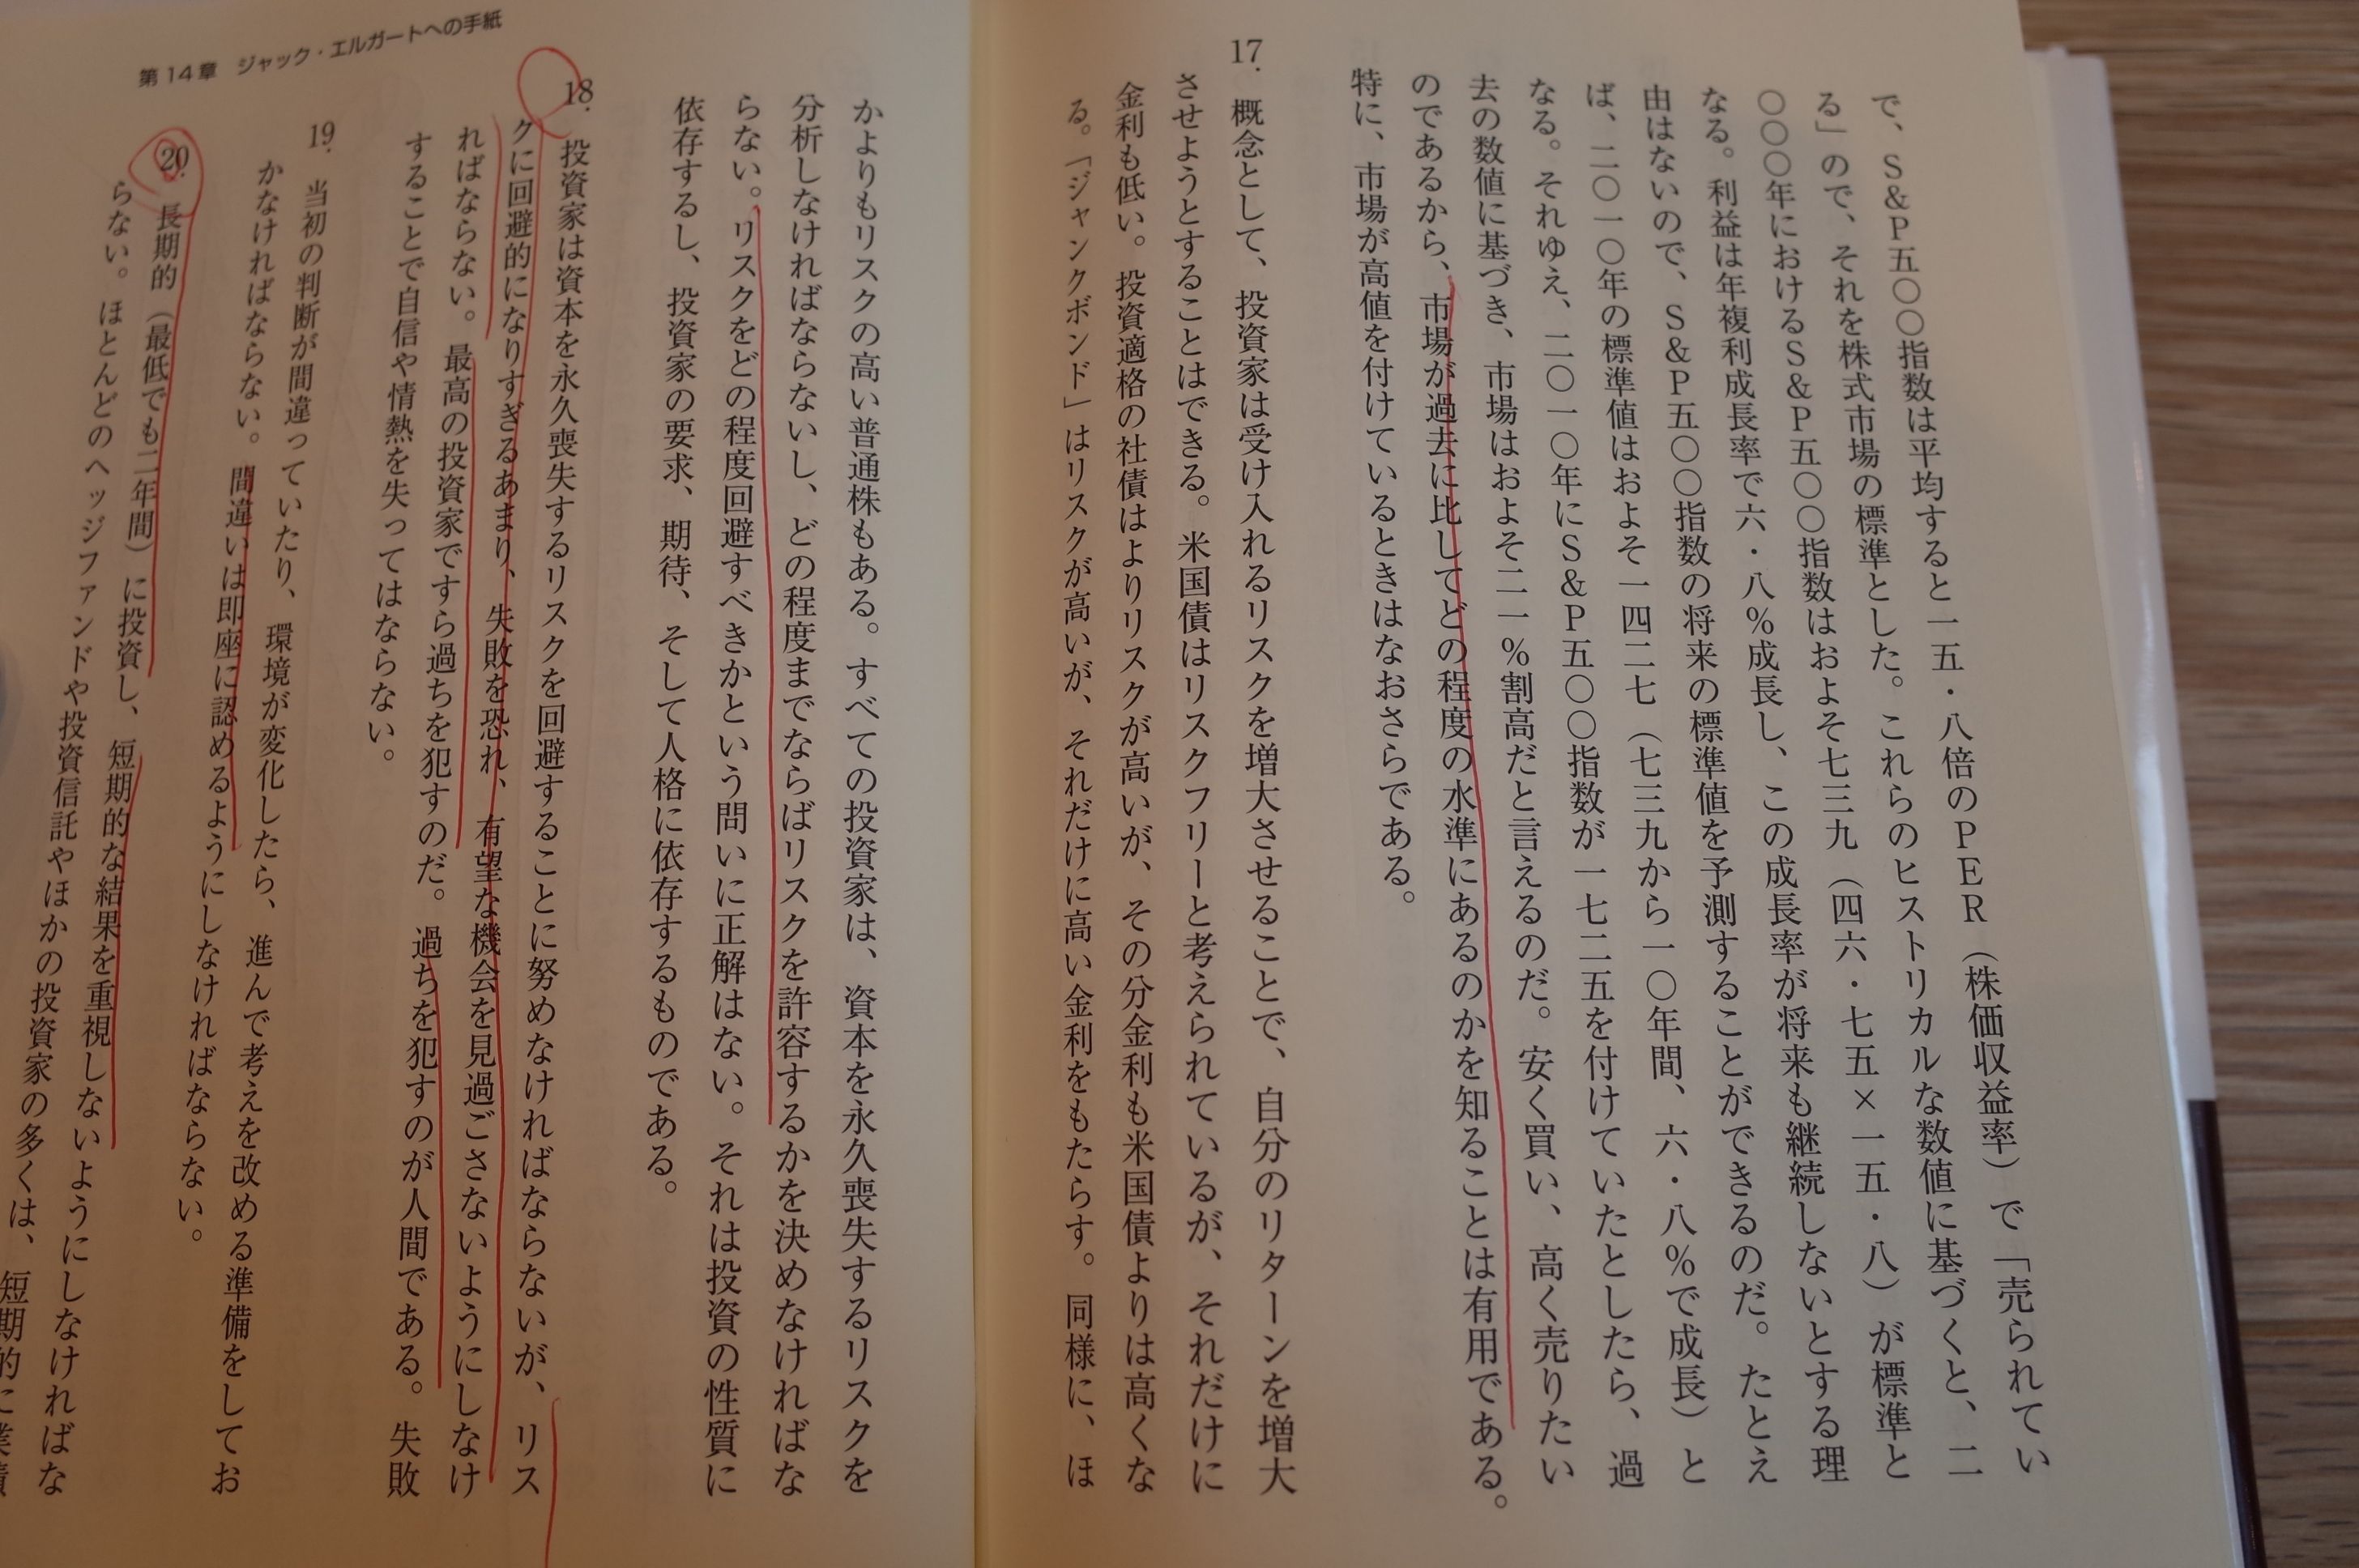 で、S&P五〇〇指数は平均すると一五・八倍のPER（株価収益率）で「売られてい
る」ので、それを株式市場の標準とした。これらのヒストリカルな数値に基づくと、二
〇〇〇年におけるS&P五〇〇指数はおよそ七三九（四六・七五×一五・八）が標準と
なる。利益は年複利成長率で六・八%成長し、この成長率が将来も継続しないとする理
由はないので、S&P五〇〇指数の将来の標準値を予測することができるのだ。たとえ
ば、二〇一〇年の標準値はおよそ一四二七（七三九から一〇年間、六・八%で成長）と
なる。それゆえ、二〇一〇年にS&P五〇〇指数が一七二五を付けていたとしたら、過
去の数値に基づき、市場はおよそ二一%割高だと言えるのだ。安く買い、高く売りたい
のであるから、市場が過去に比してどの程度の水準にあるのかを知ることは有用である。
特に、市場が高値を付けているときはなおさらである。
17. 概念として、投資家は受け入れるリスクを増大させることで、自分のリターンを増大
させようとすることはできる。米国債はリスクフリーと考えられているが、それだけに
金利も低い。投資適格の社債はよりリスクが高いが、その分金利も米国債よりは高くな
る。「ジャンクボンド」はリスクが高いが、それだけに高い金利をもたらす。同様に、ほ
第14章 ジャック・エルガートへの手紙
かよりもリスクの高い普通株もある。すべての投資家は、資本を永久喪失するリスクを
分析しなければならないし、どの程度までならばリスクを許容するかを決めなければな
らない。リスクをどの程度回避すべきかという問いに正解はない。それは投資の性質に
依存するし、投資家の要求、期待、そして人格に依存するものである。
18. 投資家は資本を永久喪失するリスクを回避することに努めなければならないが、リス
クに回避的になりすぎるあまり、失敗を恐れ、有望な機会を見過ごさないようにしなけ
ればならない。最高の投資家ですら過ちを犯すのだ。過ちを犯すのが人間である。失敗
することで自信や情熱を失ってはならない。
19. 当初の判断が間違っていたり、環境が変化したら、進んで考えを改める準備をしてお
かなければならない。間違いは即座に認めるようにしなければならない。
20. 長期的（最低でも二年間）に投資し、短期的な結果を重視しないようにしなければな
らない。ほとんどのヘッジファンドや投資信託やほかの投資家の多くは、短期的に業績